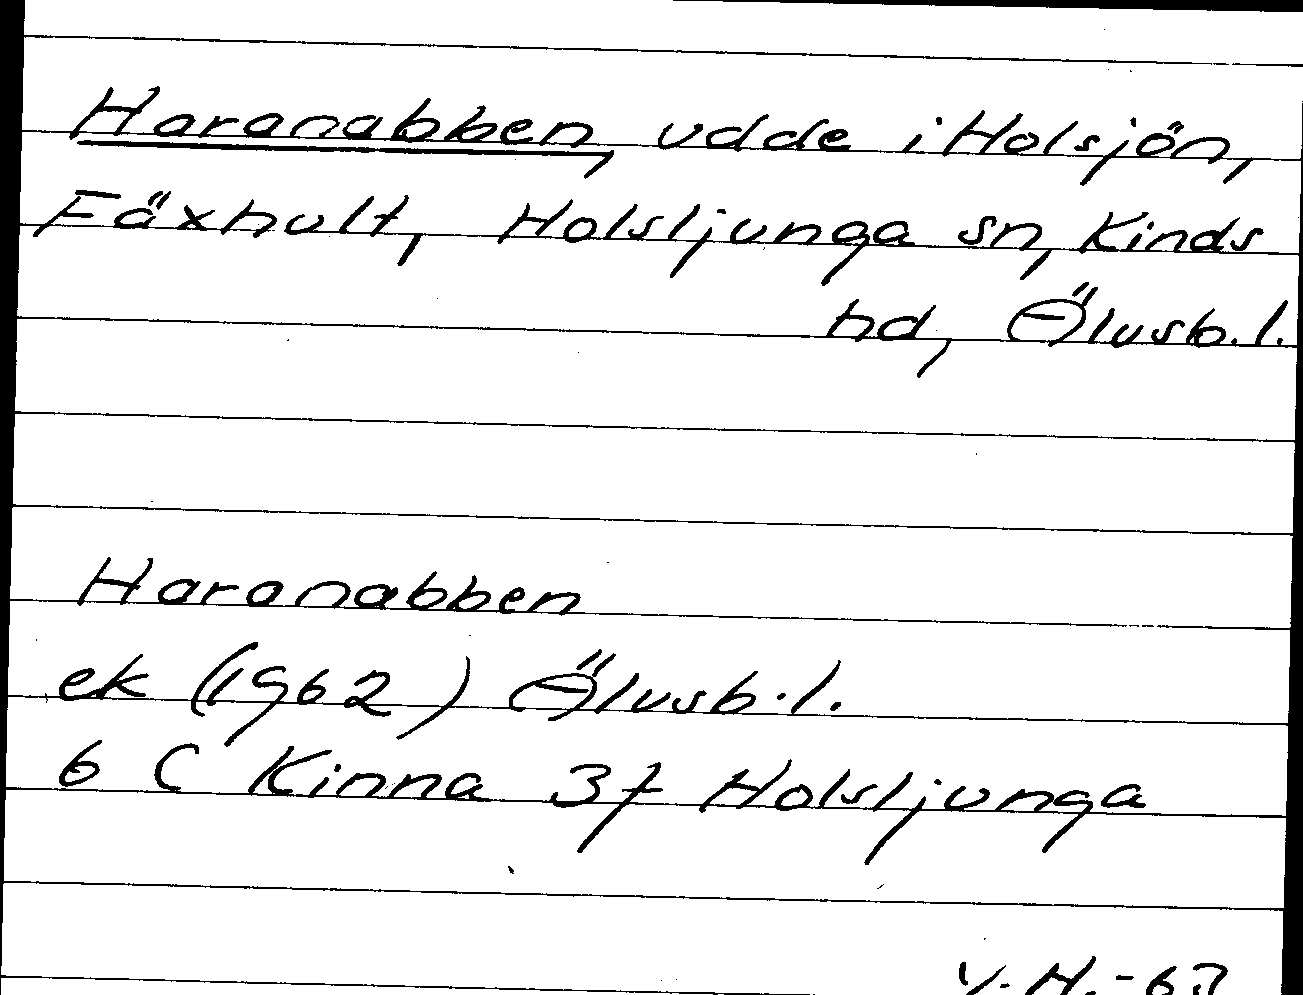 Haranabben, udde i Holsjön,
Fäxhult, Holsljunga sn, Kinds
hd, Älvsb. l.
Haranabben
ek (1962) Älvsb. l.
6 C Kinna 3f Holsljunga
V.H.-63